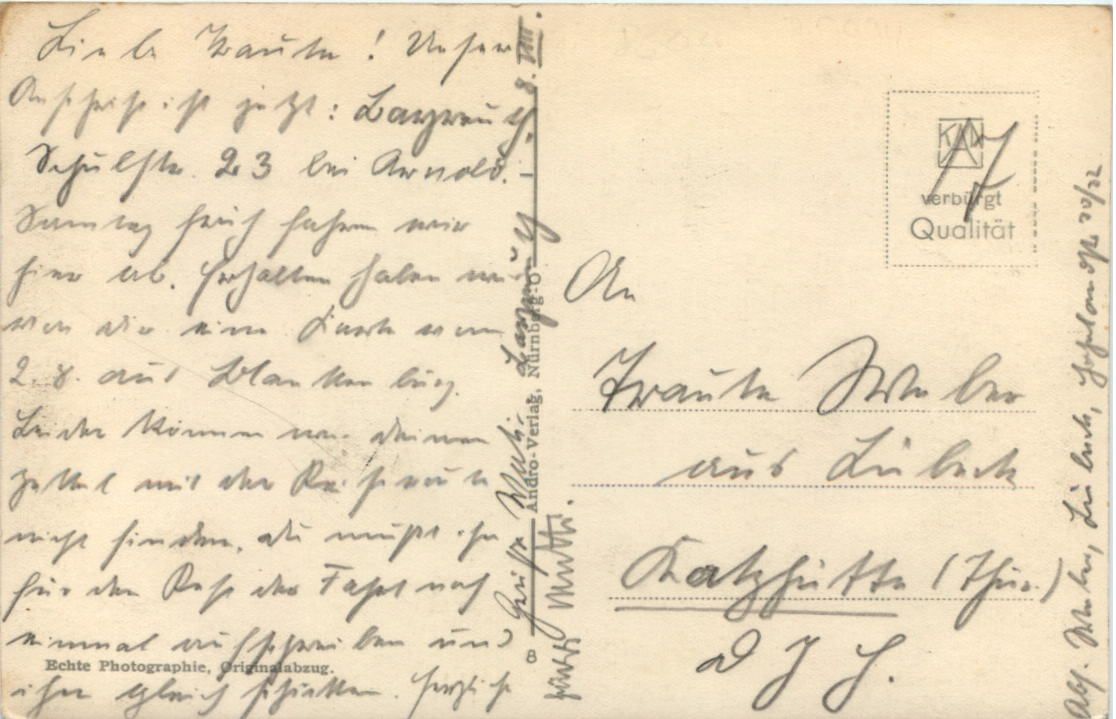 Liebe Traute! Unsere
Anschrift ist jetzt: Bayreuth,
Schulstr. 23 bei Arnold. –
Sonntag früh fahren wir
hier ab. Erhalten haben wir
von dir eine Karte vom
2. 8. aus Blankenburg.
Leider können wir deinen
Zettel mit der Reiseroute
nicht finden, du mußt ihn
für den Rest der Fahrt noch
einmal aufschreiben und
ihn gleich schicken. Herzliche
Grüße Mutti
Bayreuth 8. VIII.
Mutti.
Echte Photographie, Originalabzug.
Andro-Verlag, Nürnberg-O
8
KAN
verbürgt
Qualität
17
An
Traute Weber
aus Lübeck
Katzhütte (Thür.)
DJH.
Abs. Weber, Lübeck, 20/22